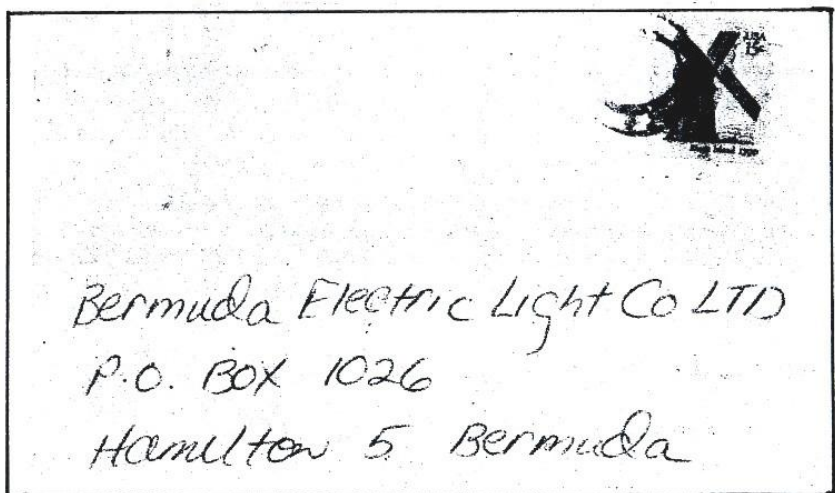 USA
15c
Bermuda Electric Light Co LTD
P.O. BOX 1026
Hamilton 5 Bermuda